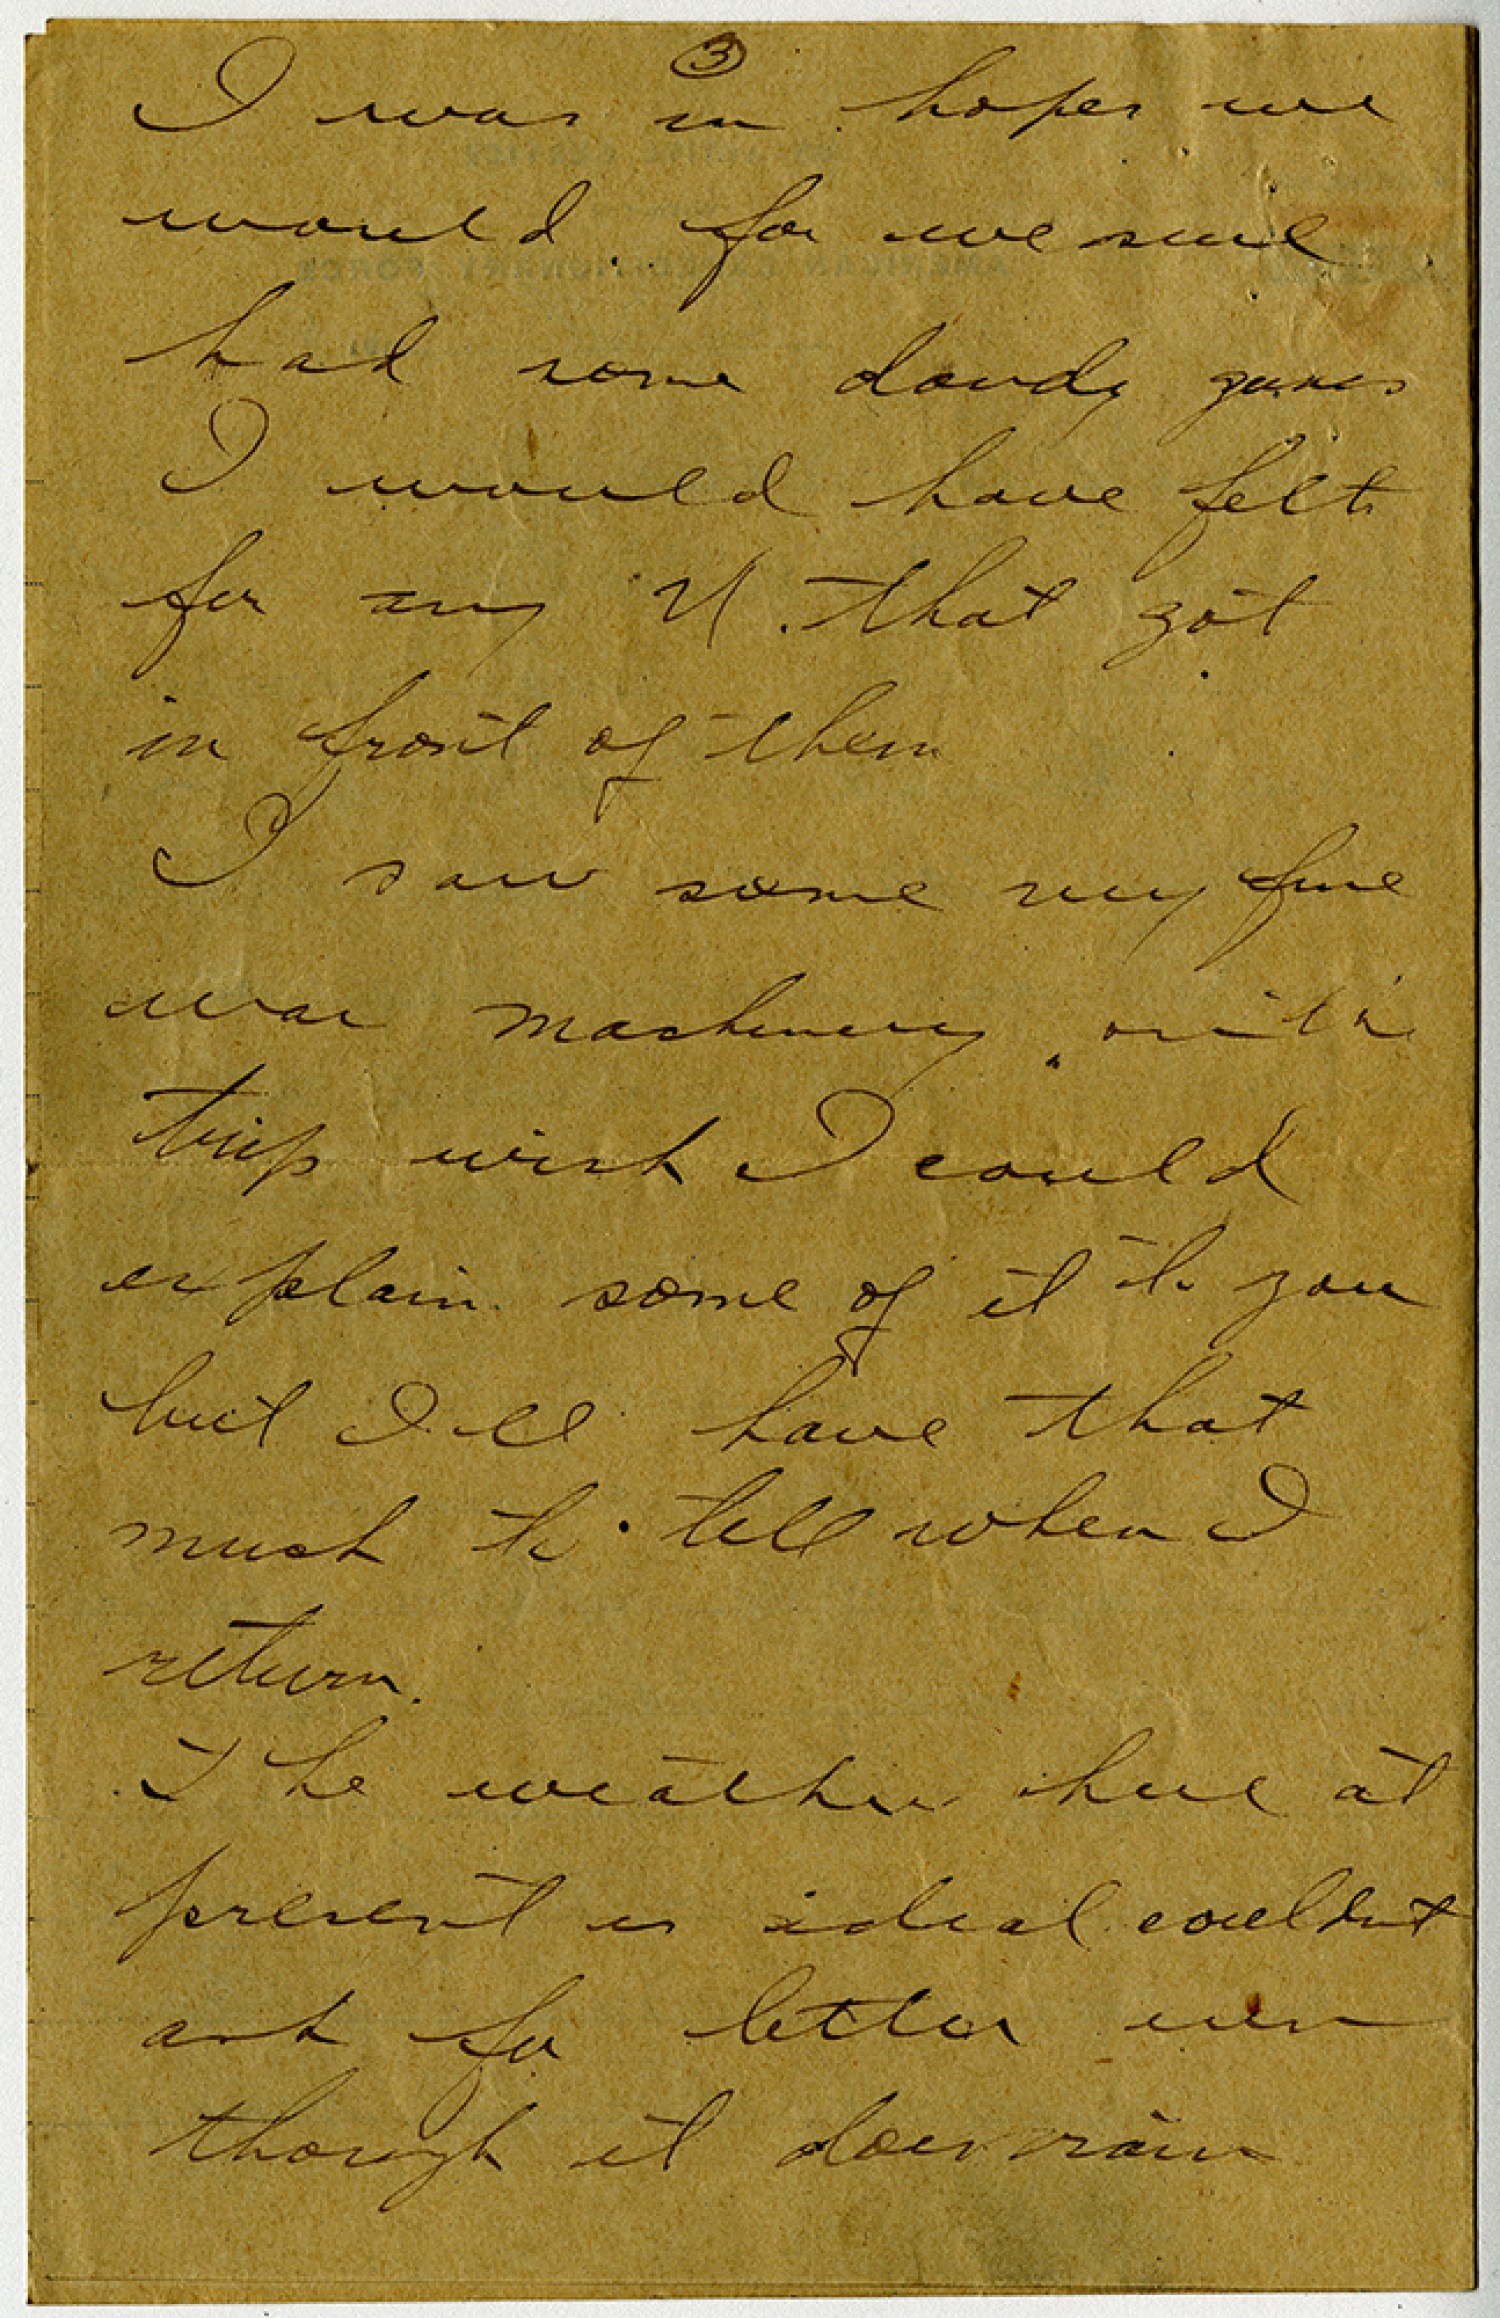 3
I was in hopes we
would for we sure
had some dandy guns
I would have felt
for any U. that got
in front of them
I saw some very fine
war machinery on this
trip wish I could
explain some of it to you
but I'll have that
much to tell when I
return.
The weather here at
present is ideal couldnt
ask for better even
though it does rain